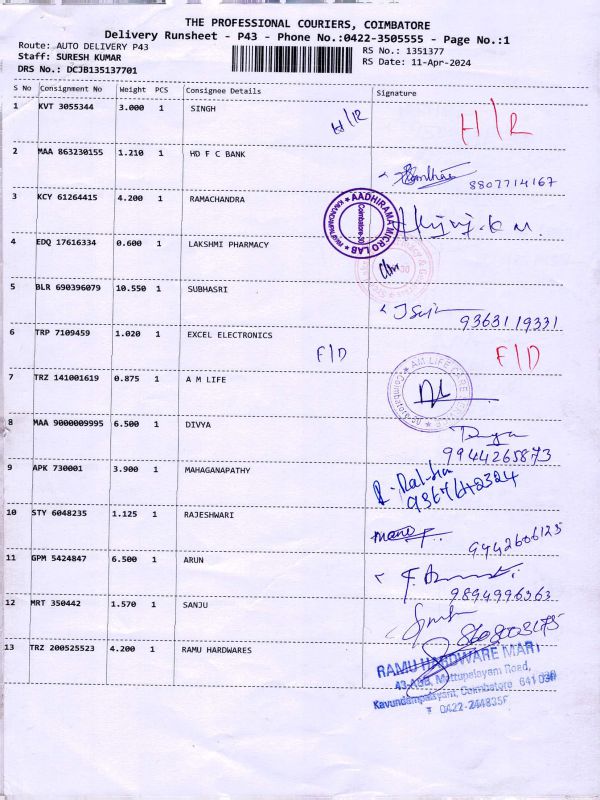 THE PROFESSIONAL COURIERS, COIMBATORE
Delivery Runsheet - P43 - Phone No.:0422-3505555 - Page No.:1
Route: AUTO DELIVERY P43
RS No.: 1351377
Staff: SURESH KUMAR
RS Date: 11-Apr-2024
DRS No.: DCJB135137701
S No Consignment No Weight PCS Consignee Details Signature
1 KVT 3055344 3.000 1 SINGH H/R H/R
2 MAA 863230155 1.210 1 HD F C BANK
8807714167
3 KCY 61264415 4.200 1 RAMACHANDRA
AADHIRAMA MICRO LAB
Coimbatore-30
4 EDQ 17616334 0.600 1 LAKSHMI PHARMACY
5 BLR 690396079 10.550 1 SUBHASRI
9363119331
6 TRP 7109459 1.020 1 EXCEL ELECTRONICS F/D F/D
7 TRZ 141001619 0.875 1 A M LIFE
AM LIFE CARE
8 MAA 9000009995 6.500 1 DIVYA
Divya
9944265873
9 APK 730001 3.900 1 MAHAGANAPATHY
10 STY 6048235 1.125 1 RAJESHWARI
9442606125
11 GPM 5424847 6.500 1 ARUN
9894996363
12 MRT 350442 1.570 1 SANJU
13 TRZ 200525523 4.200 1 RAMU HARDWARES
RAMU HARDWARE MART
Mettupalayam Road,
Kavundampalayam, Coimbatore